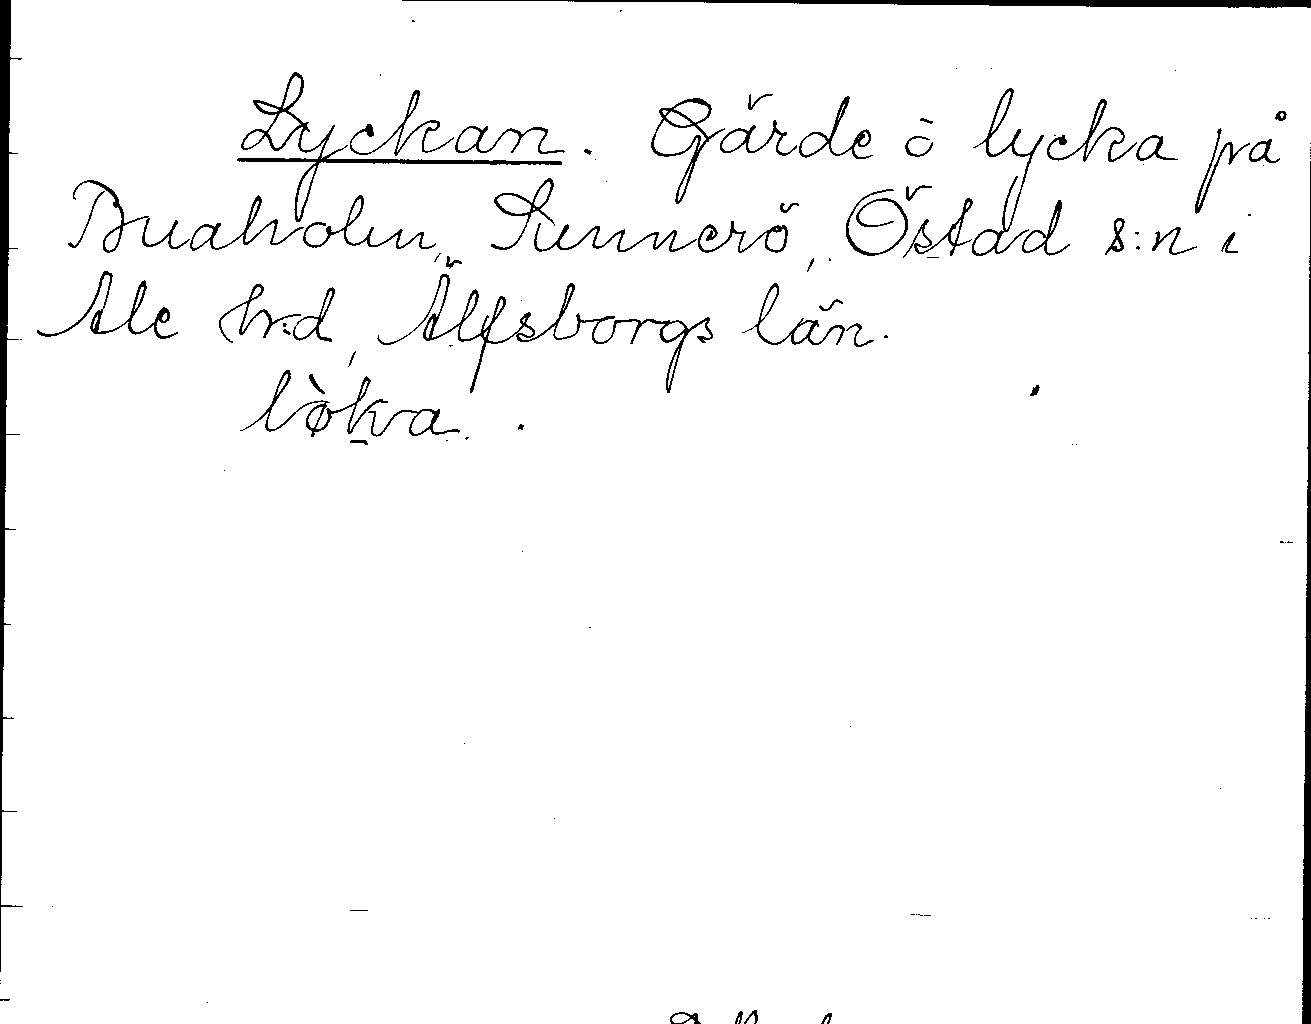 Lyckan. Gärde o lycka på
Buaholm, Sunnerö, Östad s:n i
Ale hrd, Älfsborgs län.
lø̀ka.